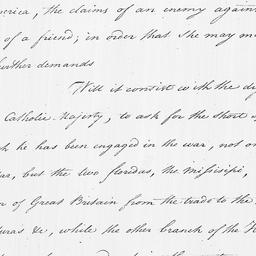 erica, the claims of an enemy agains
of a friend; in order that she may m
further demands
Will it consist with the di
Catholic Majesty, to ask for the short
h he has been engaged in the war, not on
ar, but the two floridas, the Missisipi,
r of Great Britain from the trade to the
duras &c, while the other branch of the H